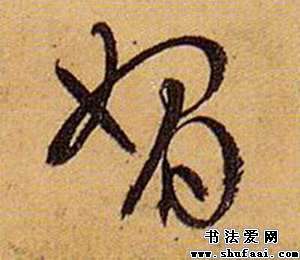 媚
书法爱网
www.shufaai.com